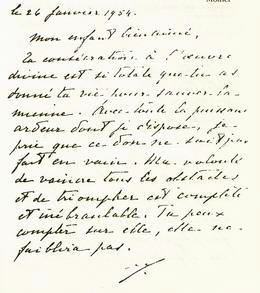 le 26 janvier 1954.
Mon enfant bien aimé,
Ta consécration à l'œuvre
divine est si totale que tu as
donné ta vie pour sauver la
mienne. Avec toute la puissante
ardeur dont je dispose, je
prie que ce don ne soit pas
fait en vain. Ma volonté
de vaincre tous les obstacles
et de triompher est complète
et inébranlable. Tu peux
compter sur elle, elle ne
faiblira pas.